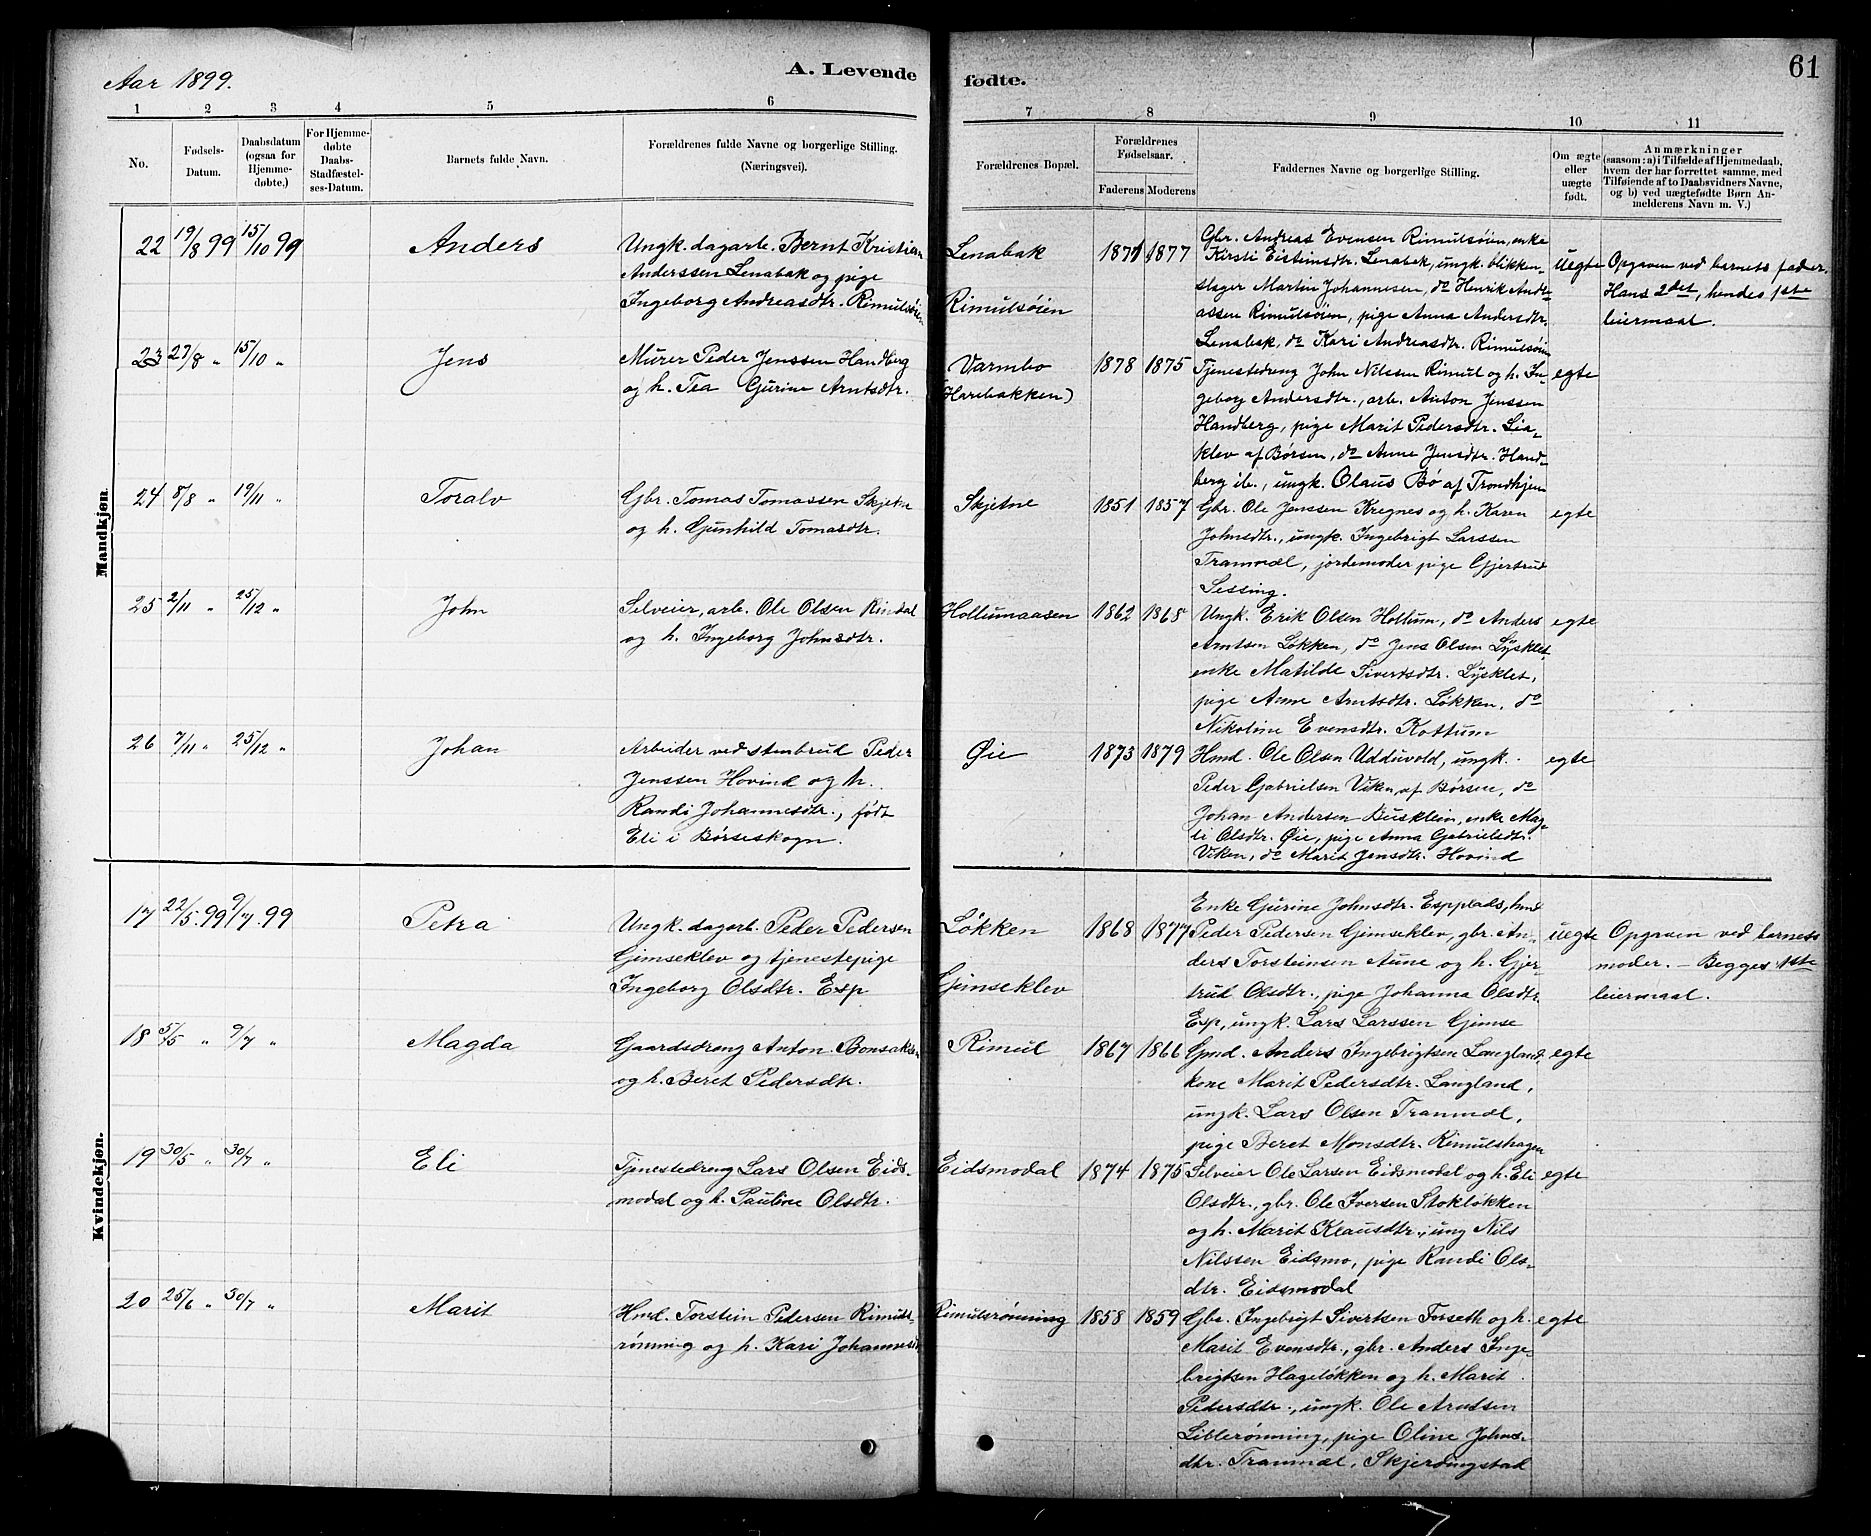 Aar 1899.
A. Levende fødte.
61
1 2 3 4 5 6 7 8 9 10 11
No.
Fødsels-
Datum.
Daabsdatum
(ogsaa for
Hjemme-
døbte.)
For Hjemme-
døbte
Daabs-
Stadfæstel-
ses-Datum.
Barnets fulde Navn.
Forældrenes fulde Navne og borgerlige Stilling.
(Næringsvei).
Forældrenes Bopæl.
Forældrenes
Fødselsaar.
Faderens Moderens
Faddernes Navne og borgerlige Stilling.
Om ægte
eller
uægte
født.
Anmærkninger
(saasom: a) i Tilfælde af Hjemmedaab,
hvem der har forrettet samme, med
Tilføiende af to Daabsvidners Navne,
og b) ved uægtefødte Børn An-
melderens Navn m. V.)
Mandkjøn.
22 19/8 99 15/10 99 Anders
Ungk. dagarb. Bernt Kristian
Anderssen Lenabak og pige
Ingeborg Andreasdtr. Rimulsøien
Lenabak
Rimulsøien
1871 1877
Gbr. Andreas Evensen Rimulsøien, enke
Kirsti Eistensdtr. Lenabak, ungk. blikken-
slager Martin Johannesen, do Henrik Andre-
assen Rimulsøien, pige Anna Andersdtr.
Lenabak, do Kari Andreasdtr. Rimulsøien
uegte
Opgaven ved barnets fader.
Hans 2det, hendes 1ste
leiermaal.
23 27/8 „ 15/10 „ Jens
Murer Peder Jenssen Handberg
og h. Tea Gurine Arntsdtr.
Varmbo
(Harebakken)
1878 1875
Tjenestedreng John Nilssen Rimul og h. In-
geborg Andersdtr., arb. Anton Jenssen
Handberg, pige Marit Pedersdtr. Lia-
klev af Børsen, do Anne Jensdtr. Hand-
berg ib., ungk. Olaus Bø af Trondhjem
egte
24 8/8 „ 19/11 „ Toralv
Gbr. Tomas Tomassen Skjetne
og h. Gunhild Tomasdtr.
Skjetne
1851 1857
Gbr. Ole Jenssen Kregnes og h. Karen
Johnsdtr., ungk. Ingebrigt Larssen
Tranmæl, jordemoder pige Gjertrud
Sessing.
egte
25 2/11 „ 25/12 „ John
Selveier, arb. Ole Olsen Rindal
og h. Ingeborg Johnsdtr.
Hollumaasen
1862 1868
Ungk. Erik Olsen Hollum, do Anders
Arntsen Løkken, do Jens Olsen Lysklet,
enke Matilde Sivertsdtr. Lysklet,
pige Anne Arntsdtr. Løkken, do
Nikoline Evensdtr. Kottum
egte
26 7/11 „ 25/12 „ Johan
Arbeider ved stenbrud Peder
Jenssen Hovind og h.
Randi Johannesdtr., født
Eli i Børseskogn.
Øie
1873 1879
Hmd. Ole Olsen Udduvold, ungk.
Peder Gabrielsen Viken, af Børsen, do
Johan Andersen Busklein, enke Mag-
li Olsdtr. Øie, pige Anna Gabrielsdtr.
Viken, do Marit Jensdtr. Hovind
egte
Kvindekjøn.
17 22/5 99 9/7 99 Petra
Ungk. dagarb. Peder Pedersen
Gimseklev og tjenestepige
Ingeborg Olsdtr. Esp
Løkken
Gimseklev
1868 1877
Enke Gurine Johnsdtr. Espplads, hmd
Peder Pedersen Gimseklev, gbr. An-
ders Torsteinsen Aune og h. Gjer-
trud Olsdtr., pige Johanna Olsdtr.
Esp, ungk. Lars Larssen Gimse
uegte
Opgaven ved barnets
moder. – Begges 1ste
leiermaal.
18 5/5 „ 9/7 „ Magda
Gaardsdreng Anton Bonsaksen
og h. Beret Pedersdtr.
Rimul
1867 1866
Gmd. Anders Ingebrigtsen Langland,
kone Marit Pedersdtr. Langland,
ungk. Lars Olsen Tranmæl,
pige Beret Monsdtr. Rimulshagen
egte
19 30/5 „ 30/7 „ Eli
Tjenestedreng Lars Olsen Eids-
modal og h. Pauline Olsdtr.
Eidsmodal
1874 1875
Selveier Ole Larsen Eidsmodal og h. Eli
Olsdtr., gbr. Ole Iversen Stokløkken
og h. Marit Klausdtr., ung Nils
Nilssen Eidsmo, pige Randi Ols-
dtr. Eidsmodal
egte
20 25/6 „ 30/7 „ Marit
Hmd. Torstein Pedersen Rimuls-
rønning og h. Kari Johannesdtr
Rimulsrønning
1858 1859
Gbr. Ingebrigt Sivertsen Forseth og h.
Marit Evensdtr., gbr. Anders Inge-
brigtsen Hageløkken og h. Marit
Pedersdtr., ungk. Ole Arntsen
Lillerønning, pige Oline Johns-
dtr. Tranmæl, Skjerdingstad
egte